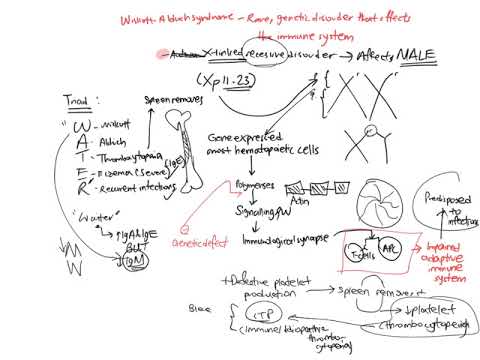 Wiskott-Aldrich syndrome - Rare, genetic disorder that effects
the immune system
X-linked recessive disorder → Affects MALE
(Xp11.23)
Triad:
Spleen removes
"W - Wiskott
A - Aldrich
T - Thrombocytopenia
E - Eczema (severe) (IgE)
R" - Recurrent infections
Gene expressed
most hematopoietic cells
Polymerises
Actin
Signalling PW
Immunological synapse
T-cells
APC
Genetic defect
Predisposed
to infections
Impaired
adaptive
immune
system
"Water"
↳ ↑IgA & IgE
BUT
↓IgM
W
+ Defective platelet
production → Spleen removes it
↓platelet
(thrombocytopenia)
ITP
(Immune/Idiopathic
thrombo-
cytopenia)